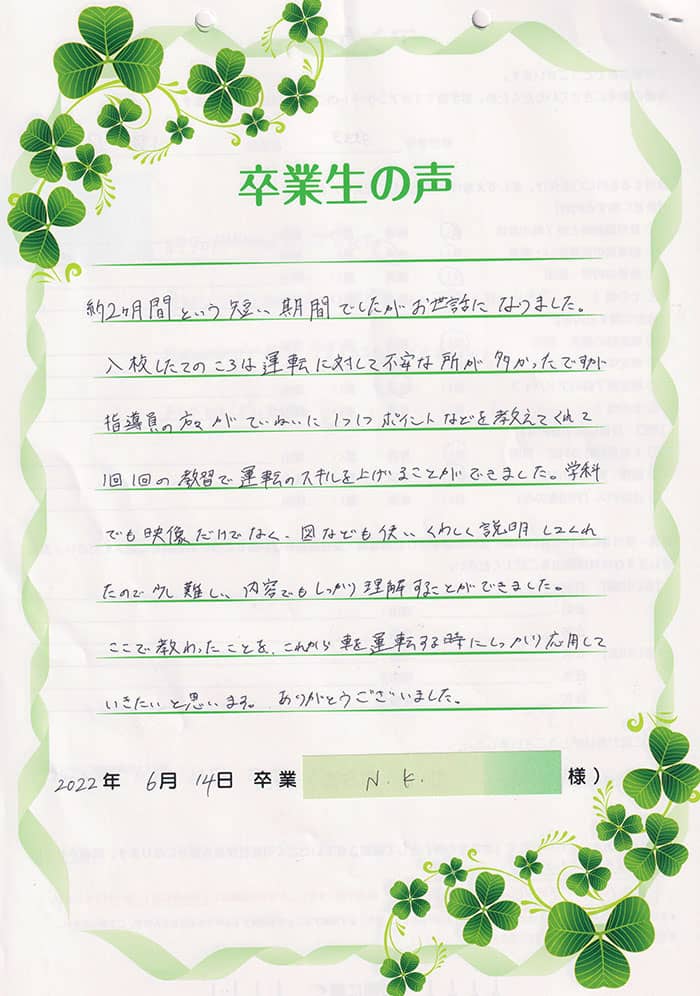 卒業生の声
約2ヶ月間という短い期間でしたがお世話になりました。
入校したてのころは運転に対して不安な所が多かったですが
指導員の方々がていねいに1つ1つポイントなどを教えてくれて
1回1回の教習で運転のスキルを上げることができました。学科
でも映像だけでなく、図なども使いくわしく説明してくれ
たので少し難しい内容でもしっかり理解することができました。
ここで教わったことを、これから車を運転する時にしっかり応用して
いきたいと思います。ありがとうございました。
2022年 6月 14日 卒業 N.K. 様)